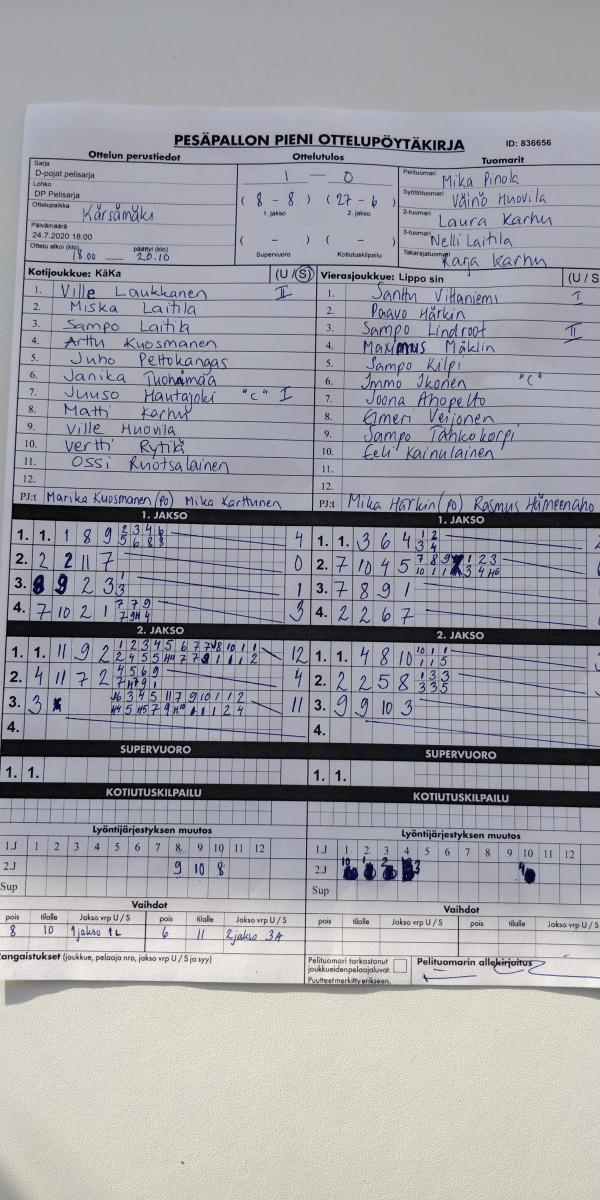 PESÄPALLON PIENI OTTELUPÖYTÄKIRJA
ID: 836656
Ottelun perustiedot
Ottelutulos
Tuomarit
Sarja
D-pojat pelisarja
Lohko
DP Pelisarja
Ottelupaikka
Kärsämäki
Päivämäärä
24.7.2020 18:00
Ottelu alkoi (klo) päättyi (klo)
18.00 20.10
1 — 0
( 8 - 8 ) ( 27 - 6 )
1. jakso 2. jakso
( - ) ( - )
Supervuoro Kotiutuskilpailu
Pelituomari Mika Pirola
Syöttötuomari Väinö Huovila
2-tuomari Laura Karhu
3-tuomari Nelli Laitila
Takarajatuomari Karhu
Kotijoukkue: KäKa (U / S)
1. Ville Laukkanen II
2. Miska Laitila
3. Sampo Laitila
4. Arttu Kuosmanen
5. Juho Peltokangas
6. Janika Tuohimaa
7. Juuso Hautajoki "C" I
8. Matti Karhu
9. Ville Huovila
10. Vertti Rytilä
11. Ossi Ruotsalainen
12.
PJ:t Marika Kuosmanen (po) Mika Karttunen
Vierasjoukkue: Lippo sin (U / S
1. Santtu Viitaniemi I
2. Paavo Härkin
3. Sampo Lindroot II
4. Maximus Mäklin
5. Sampo Kilpi
6. Immo Ikonen "C"
7. Joona Ahopelto
8. Elmeri Veijonen
9. Sampo Tahkokorpi
10. Eeli Kainulainen
11.
12.
PJ:t Mika Härkin (po) Rasmus Hämeenaho
1. JAKSO
1. 1. 1 8 9 2 3 4 6 4
5 6 8 8
2. 2 2 11 7 0
3. 8 9 2 3 1
4. 7 10 2 1 7 7 9 3
2. JAKSO
1. 1. 11 9 2 12
2. 4 11 7 2 4 5 6 9 4
3. 3 11
4.
SUPERVUORO
1. 1.
KOTIUTUSKILPAILU
1. JAKSO
1. 1. 3 6 4 1 2
3 4
2. 7 10 4 5 7 8 9
3. 7 8 9 1
4. 2 2 6 7
2. JAKSO
1. 1. 4 8 10 10 1 1
1 1 5
2. 2 2 5 8 1 3 3
3 3 5
3. 9 9 10 3
4.
SUPERVUORO
1. 1.
KOTIUTUSKILPAILU
Lyöntijärjestyksen muutos
1.J 1 2 3 4 5 6 7 8 9 10 11 12
2.J 9 10 8
Sup
Lyöntijärjestyksen muutos
1.J 1 2 3 4 5 6 7 8 9 10 11 12
2.J
Sup
Vaihdot
pois tilalle Jakso vrp U / S pois tilalle Jakso vrp U / S
8 10 1jakso 1L 6 11 2jakso 3A
Vaihdot
pois tilalle Jakso vrp U / S pois tilalle Jakso vrp U / S
angaistukset (joukkue, pelaaja nro, jakso vrp U / S ja syy)
Pelituomari tarkastanut
joukkueiden pelaajaluvat.
Puutteet merkitty erikseen.
Pelituomarin allekirjoitus